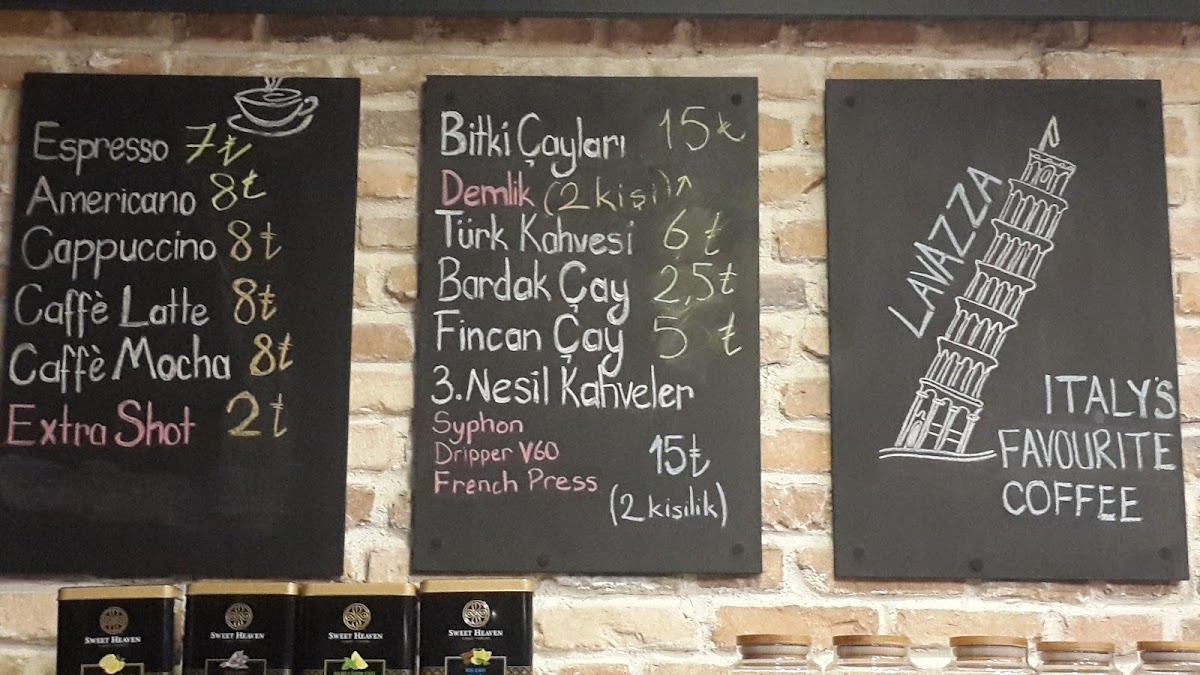 Espresso 7₺
Americano 8₺
Cappuccino 8₺
Caffè Latte 8₺
Caffè Mocha 8₺
Extra Shot 2₺
Bitki Çayları 15₺
Demlik (2 kişi)
Türk Kahvesi 6₺
Bardak Çay 2,5₺
Fincan Çay 5₺
3.Nesil Kahveler
Syphon
Dripper V60 15₺
French Press
(2 kişilik)
LAVAZZA
ITALY'S
FAVOURITE
COFFEE
SWEET HEAVEN
SWEET HEAVEN
SWEET HEAVEN
SWEET HEAVEN